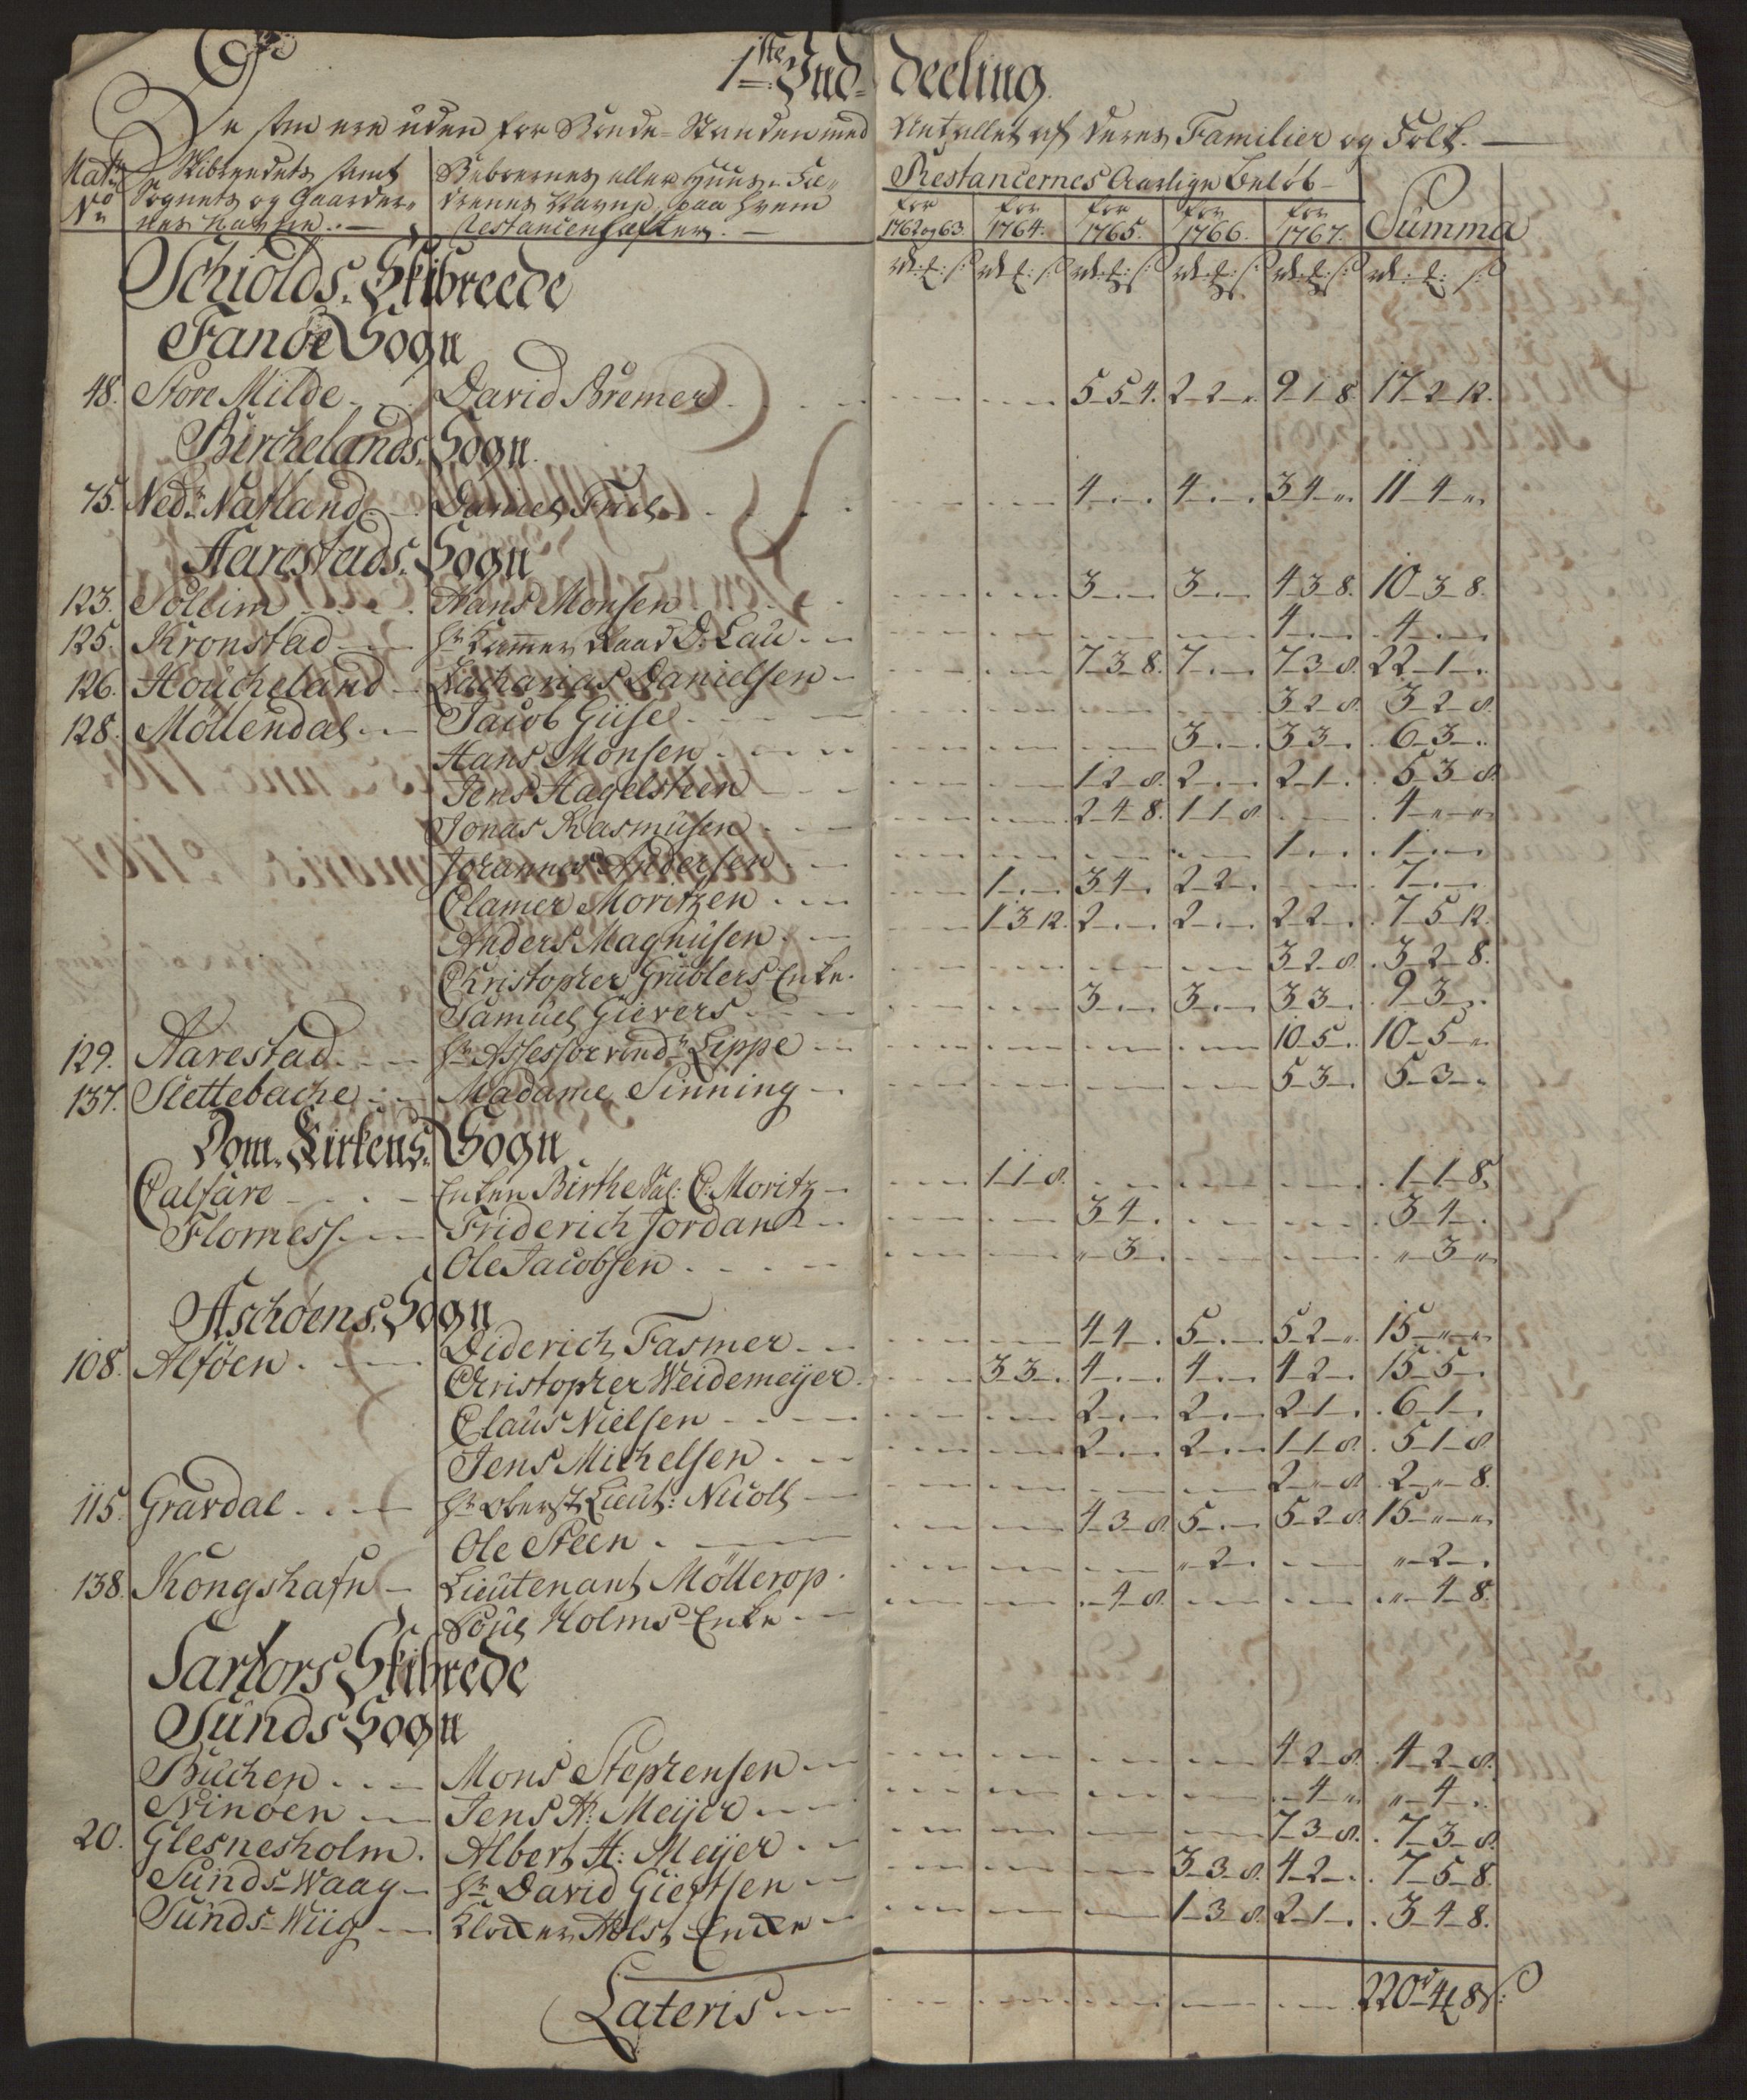 1ste Ind- deeling.
De som ere uden for Bonde-Standen med Antallet af deres Familier og Folk.
Matr No Skibreedets samt Sognets og Gaardernes Navne. Beboernes eller Huus-Fædrenes Navne, paa hvem Restancen hæfter. Restancernes Aarlige Beløb Summa
for 1762 og 63. for 1764. for 1765. for 1766. for 1767.
rdr. ß: rdr. ß: rdr. ß: rdr. ß: rdr. ß: rdr. ß:
Schiolds. Skibreede
Fanöe Sogn
48. Store Milde David Bremer 5-5-4. 2-2-" 9-1-8. 17-2-12.
Birchelands. Sogn.
75. Nedr. Natland Daniel Friis 4 4 3-4-" 11-4-"
Aarestads. Sogn
123. Soleim Hans Monsen 3 3 4-3-8. 10-3-8.
125. Kronstad Hr. Kammer Raad D. Lau 4 4
126. Houcheland Zacharias Danielsen 7-3-8. 7 7-3-8. 22-1
128. Möllendal Jacob Giise 3-2-8. 3-2-8.
Hans Monsen 3 3-3 6-3
Jens Hagelsteen 1-2-8. 2 2-1 5-3-8.
Jonas Rasmusen 2-4-8. 1-1-8 4-"-"
Johannes Andersen 1 1
Clamer Moritzen 1 3-4 2-2 7
Anders Magnusen 1-3-12. 2 2 2-2 7-5-12.
Christopher Grüblers Enke 3-2-8. 3-2-8.
Samuel Gievers 3 3 3-3 9-3
129. Aarestad Hr. Assessor Lippe 10-5 10-5
137. Slettebache Madame Sinning 5-3 5-3
Dom. Kirkens. Sogn.
Calfare Enken Birthe Sal. C. Moritz 1-1-8. 1-1-8.
Floness Friderich Jordan 3-4 3-4
Ole Jacobsen "-3 "-3-"
Aschöens. Sogn
108. Alföen Diderich Fasmer 4-4 5 5-2-" 15-"-"
Christopher Weidemeÿer 3-3 4 4 4-2 15-5
Claus Nielsen 2 2 2-1 6-1
Jens Michelsen 2 2 1-1-8 5-1-8
115. Gravdal Hr. Oberst Lieut: Nicoll 2-"-8 2-"-8.
Ole Steen 4-3-8. 5 5-2-8 15-"-"
138. Kongshafn Lieutenant Möllerop "-2 "-2
Poul Holms Enke 4-8. "-4-8.
Sartors Skibrede
Sunds Sogn
Buchen Mons Stephensen 4-2-8. 4-2-8.
Svinöen Jens H: Meÿer 4-" "-4
20. Glesnesholm. Albert H: Meÿer 7-3-8. 7-3-8.
Sunds-Waag Hr. David Giertsen 3-3-8. 4-2 7-5-8.
Sunds-Wiig Klocker Holst Encke 1-3-8. 2-1 3-4-8.
Lateris 220 4 8ß: